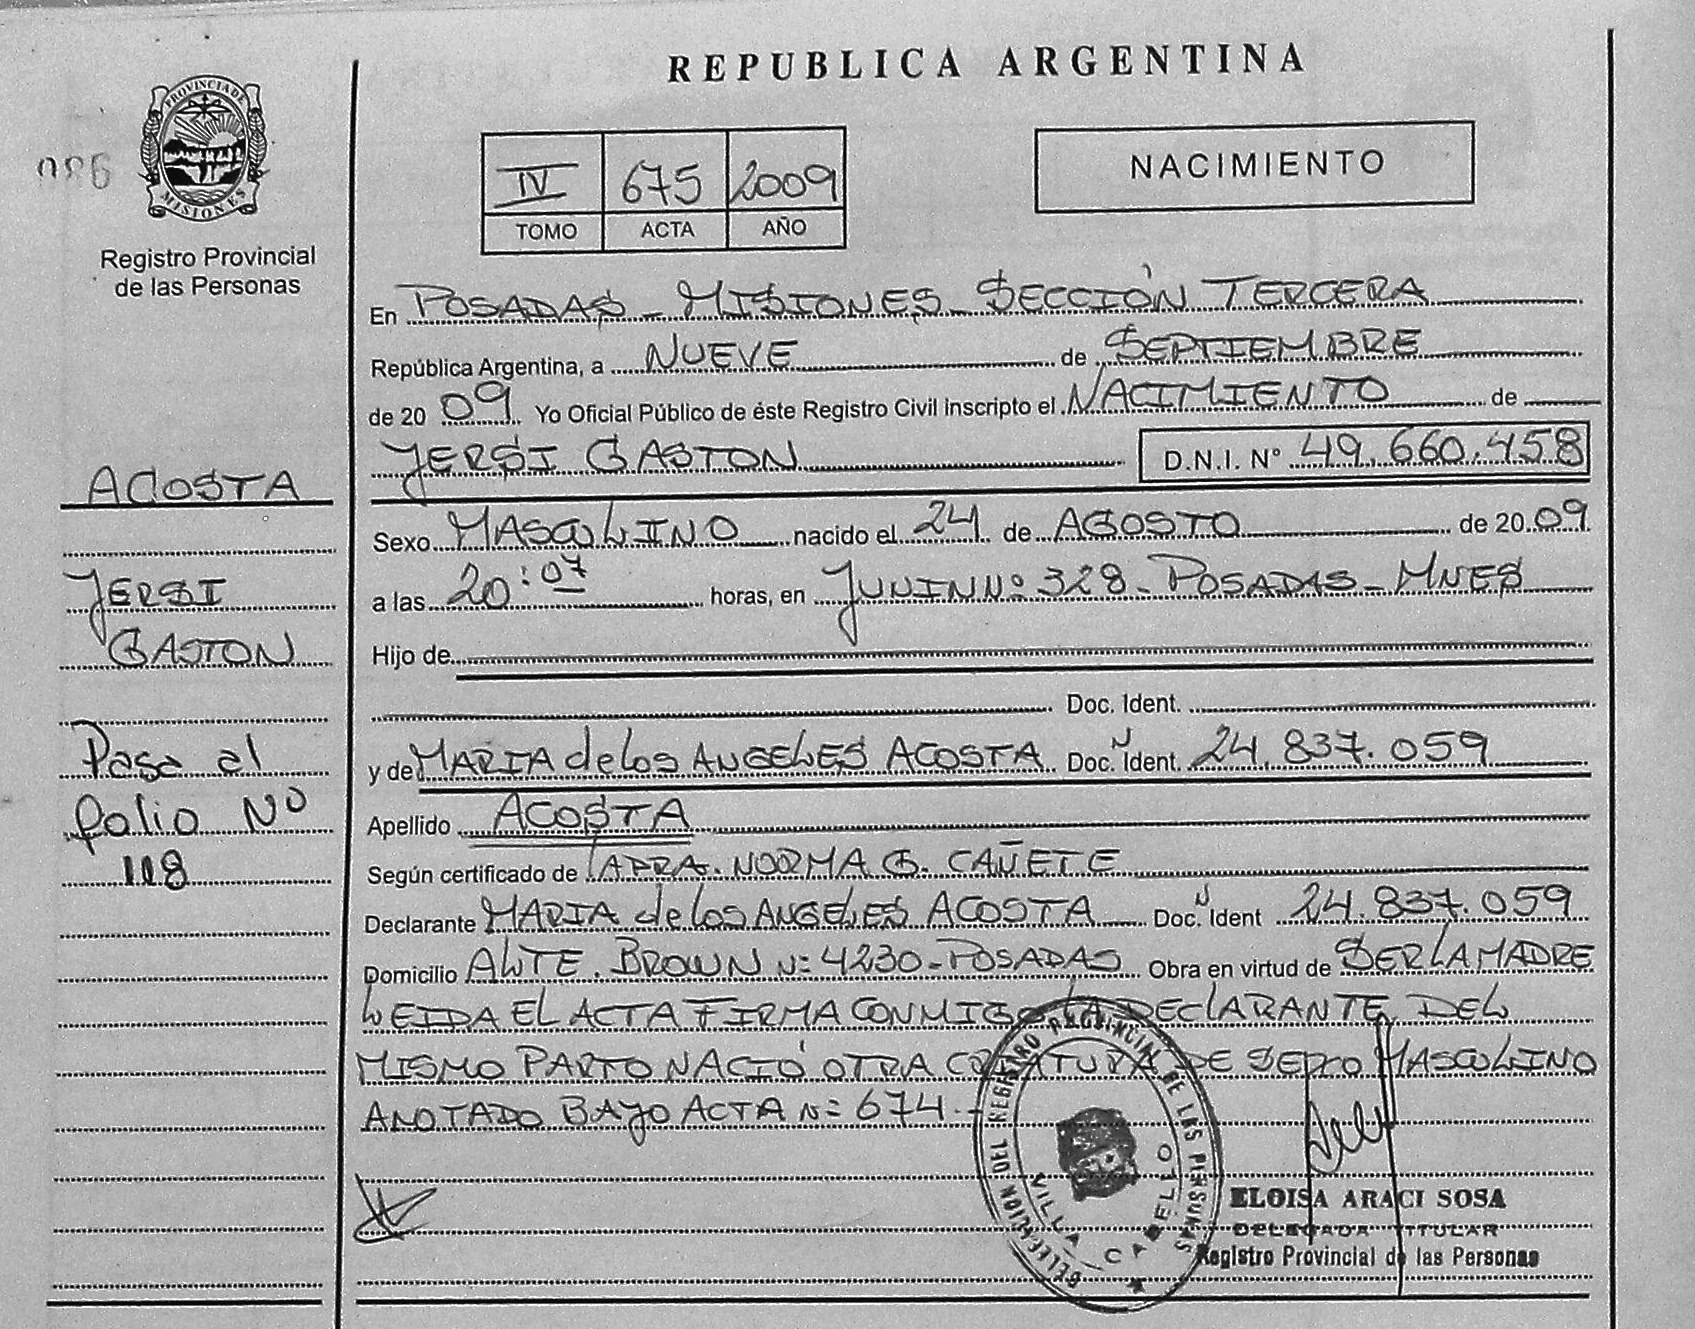 REPUBLICA ARGENTINA
PROVINCIA DE
MISIONES
086
Registro Provincial
de las Personas
IV 675 2009
TOMO ACTA AÑO
NACIMIENTO
En POSADAS - MISIONES - SECCIÓN TERCERA
República Argentina, a NUEVE de SEPTIEMBRE
de 2009 Yo Oficial Público de éste Registro Civil Inscripto el NACIMIENTO de
JERSI GASTON D.N.I. N° 49.660.458
ACOSTA
JERSI
GASTON
Pasa al
folio Nº
118
Sexo MASCULINO nacido el 24 de AGOSTO de 2009
a las 20:07 horas, en JUNIN Nº 328 - POSADAS - MNES
Hijo de
Doc. Ident.
y de MARIA de los ANGELES ACOSTA Doc. Ident. 24.837.059
Apellido ACOSTA
Según certificado de LA DRA. NORMA G. CAÑETE
Declarante MARIA de los ANGELES ACOSTA Doc. Ident 24.837.059
Domicilio ALTE. BROWN Nº 4230 - POSADAS Obra en virtud de SER LA MADRE
LEIDA EL ACTA FIRMA CONMIGO LA DECLARANTE. DEL
MISMO PARTO NACIÓ OTRA CRIATURA DE SEXO MASCULINO
ANOTADO BAJO ACTA Nº 674.-
DELEGACION DEL REGISTRO PROVINCIAL DE LAS PERSONAS
VILLA CABELLO
ELOISA ARACI SOSA
DELEGADA TITULAR
Registro Provincial de las Personas